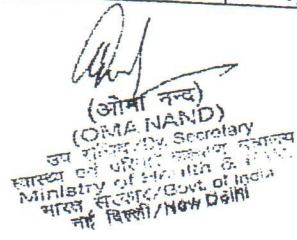 (ओमा नन्द)
(OMA NAND)
उप सचिव/Dy. Secretary
स्वास्थ्य एवं परिवार कल्याण मंत्रालय
Ministry of Health &
भारत सरकार/Govt. of India
नई दिल्ली/New Delhi